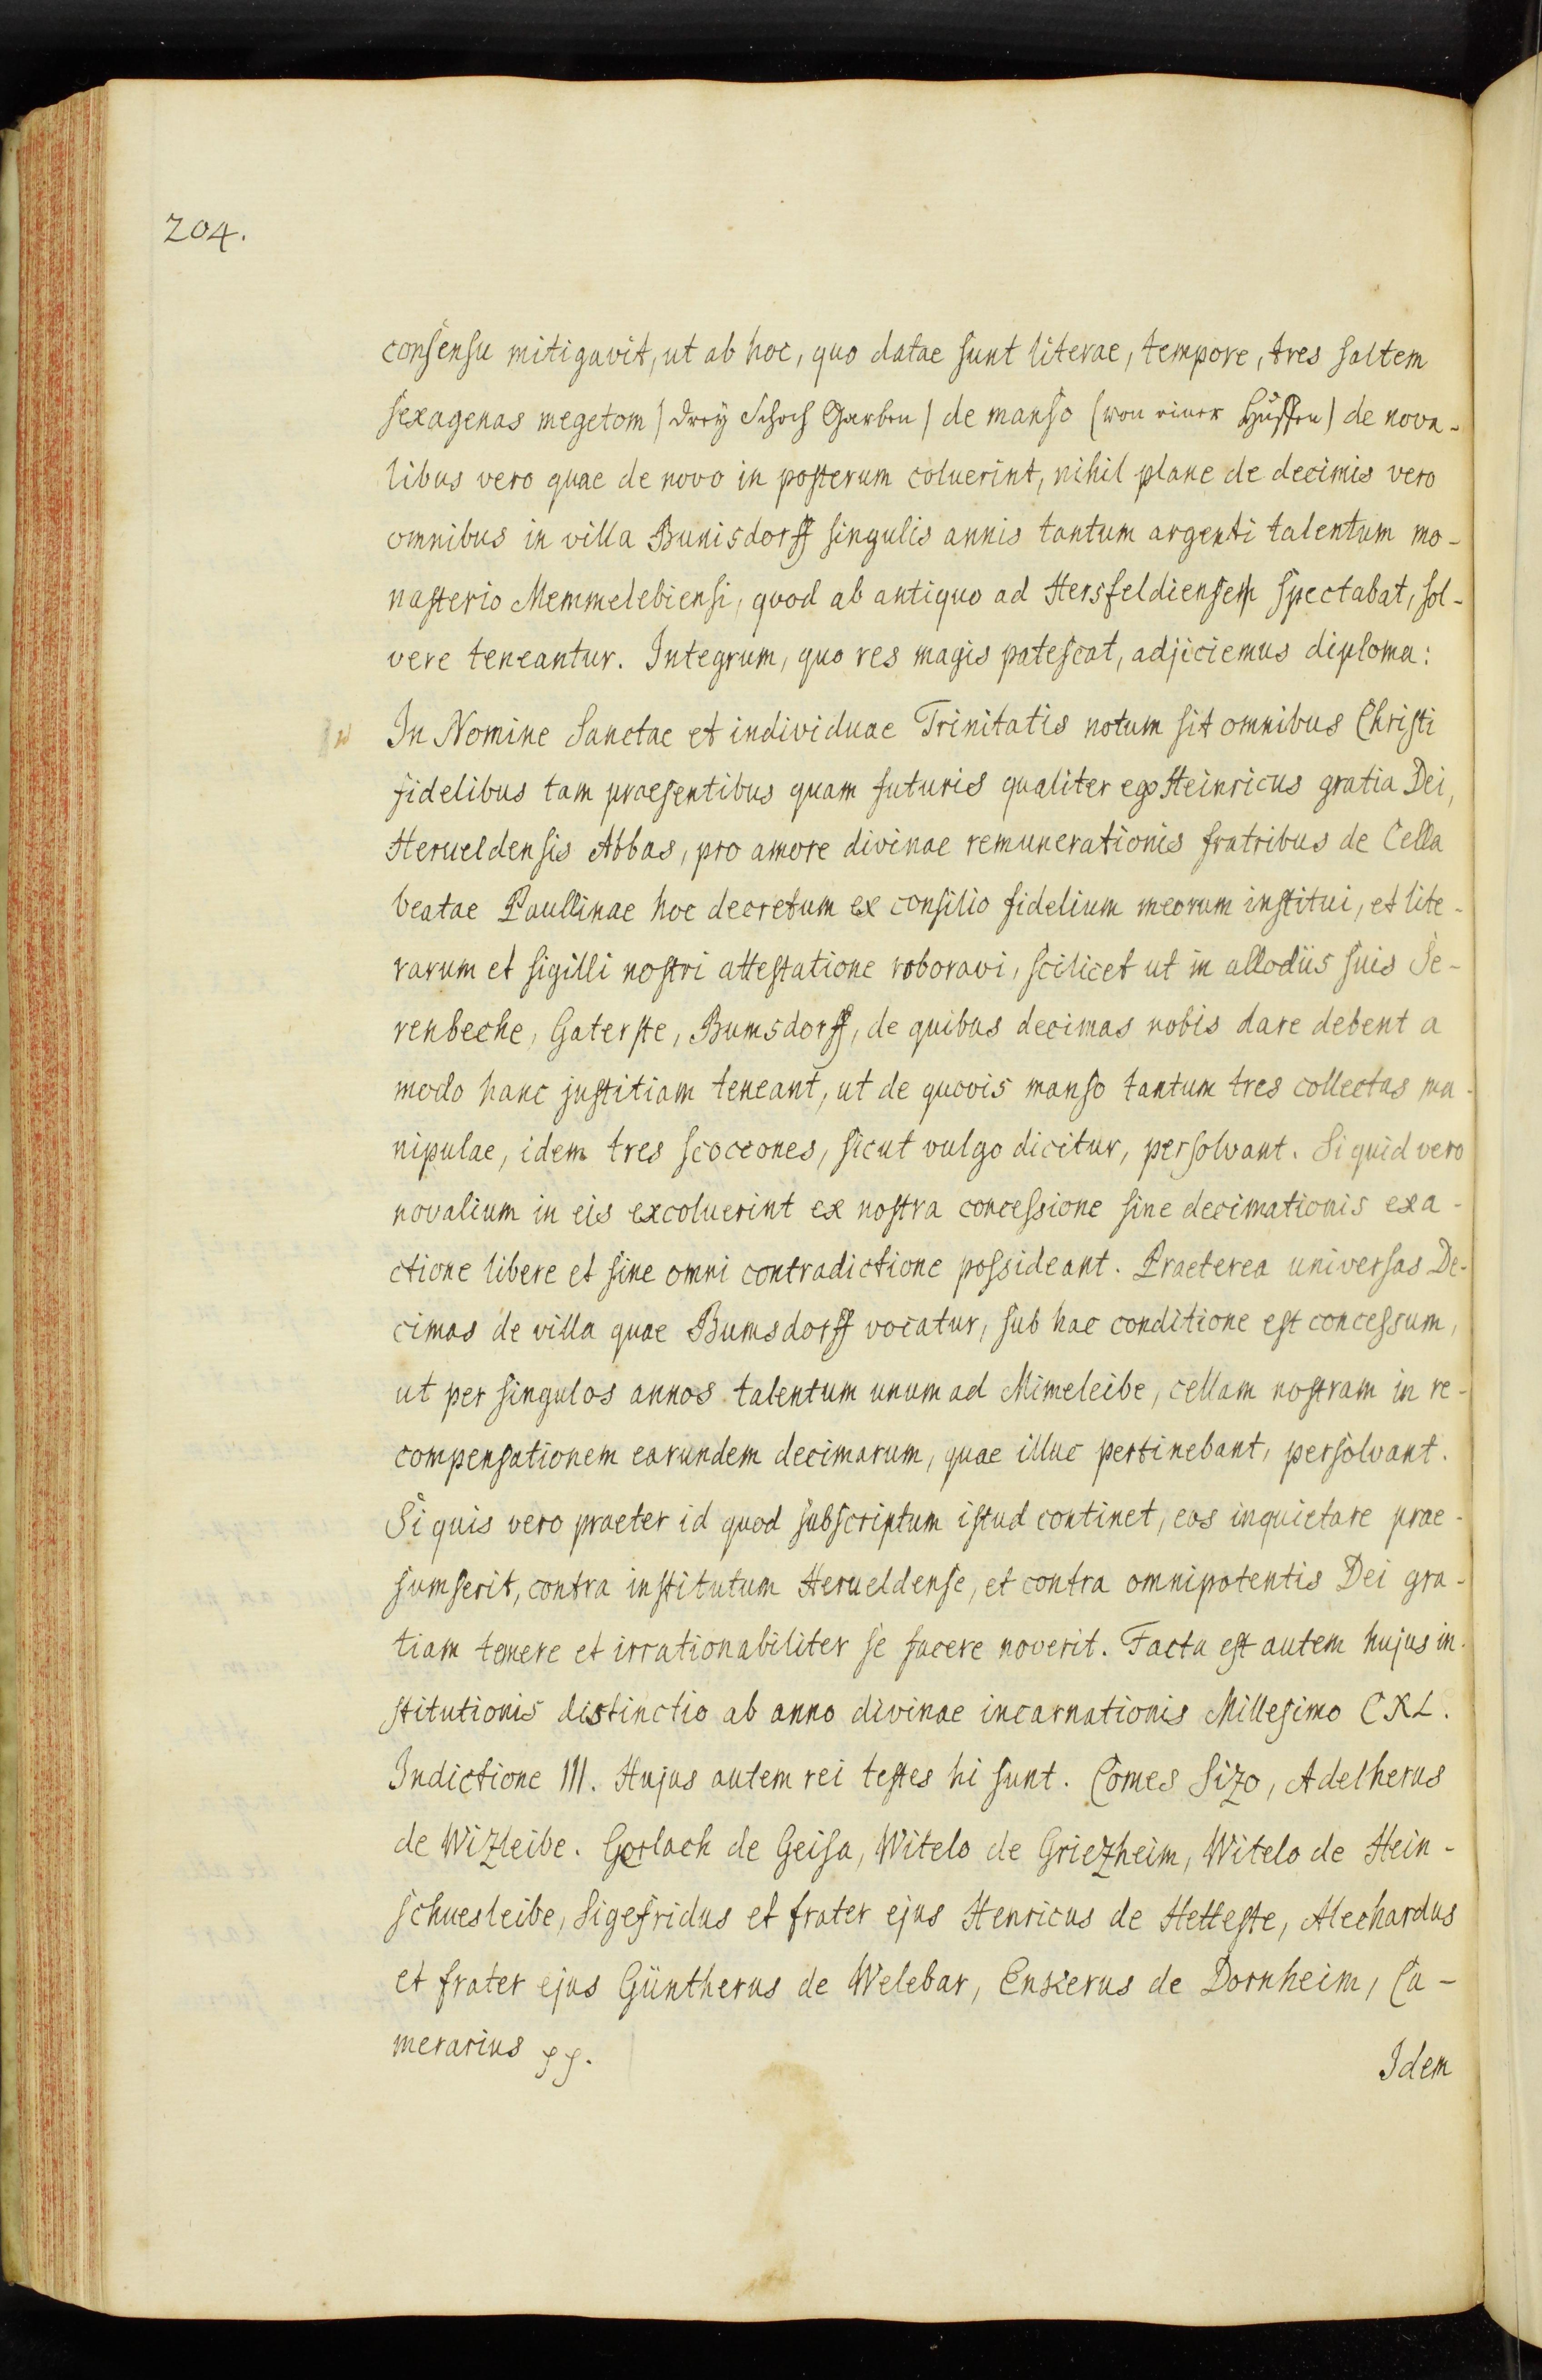 204.
consensu mitigavit, ut ab hoc, quo datae sunt literae, tempore, tres saltem
sexagenas megetom) drey Schoch Garben) de manso (von einer Huffen) de nova-
libus vero quae de novo in posterum coluerint, nihil plane de decimis vero
omnibus in villa Bunisdorff singulis annis tantum argenti talentum mo-
nasterio Memmelebiensi, quod ab antiquo ad Hersfeldiensem spectabat, sol-
vere teneantur. Integrum, quo res magis patescat, adjiciemus diploma:
In Nomine Sanctae et individuae Trinitatis notum sit omnibus Christi
fidelibus tam praesentibus quam futuris qualiter ego Heinricus gratia Dei,
Herueldensis Abbas, pro amore divinae remunerationis fratribus de Cella
beatae Paullinae hoc decretum ex consilio fidelium meorum institui, et lite-
rarum et sigilli nostri attestatione roboravi, scilicet ut in allodiis suis Se-
renbeche, Gaterste, Bumsdorff, de quibus decimas nobis dare debent a
modo hanc justitiam teneant, ut de quovis manso tantum tres collectas ma-
nipulae, idem tres scoccones, sicut vulgo dicitur, persolvant. Si quid vero
novalium in eis excoluerint ex nostra concessione sine decimationis exa-
ctione libere et sine omni contradictione possideant. Praeterea universas De-
cimas de villa quae Bumsdorff vocatur, sub hac conditione est concessum,
ut per singulos annos talentum unum ad Mimeleibe, cellam nostram in re-
compensationem earundem decimarum, quae illuc pertinebant, persolvant.
Si quis vero praeter id quod subscriptum istud continet, eos inquietare prae-
sumserit, contra institutum Herueldense, et contra omnipotentis Dei gra-
tiam temere et irrationabiliter se facere noverit. Facta est autem hujus in-
stitutionis distinctio ab anno divinae incarnationis Millesimo CXL.
Indictione III. Hujus autem rei testes hi sunt. Comes Sizo, Adelherus
de Wizleibe. Gerlach de Geisa, Witelo de Griezheim, Witelo de Hein-
schuesleibe, Sigefridus et frater ejus Henricus de Hetteste, Alechardus
et frater ejus Güntherus de Welebar, Enkerus de Dornheim, Ca-
merarius pp.
Idem